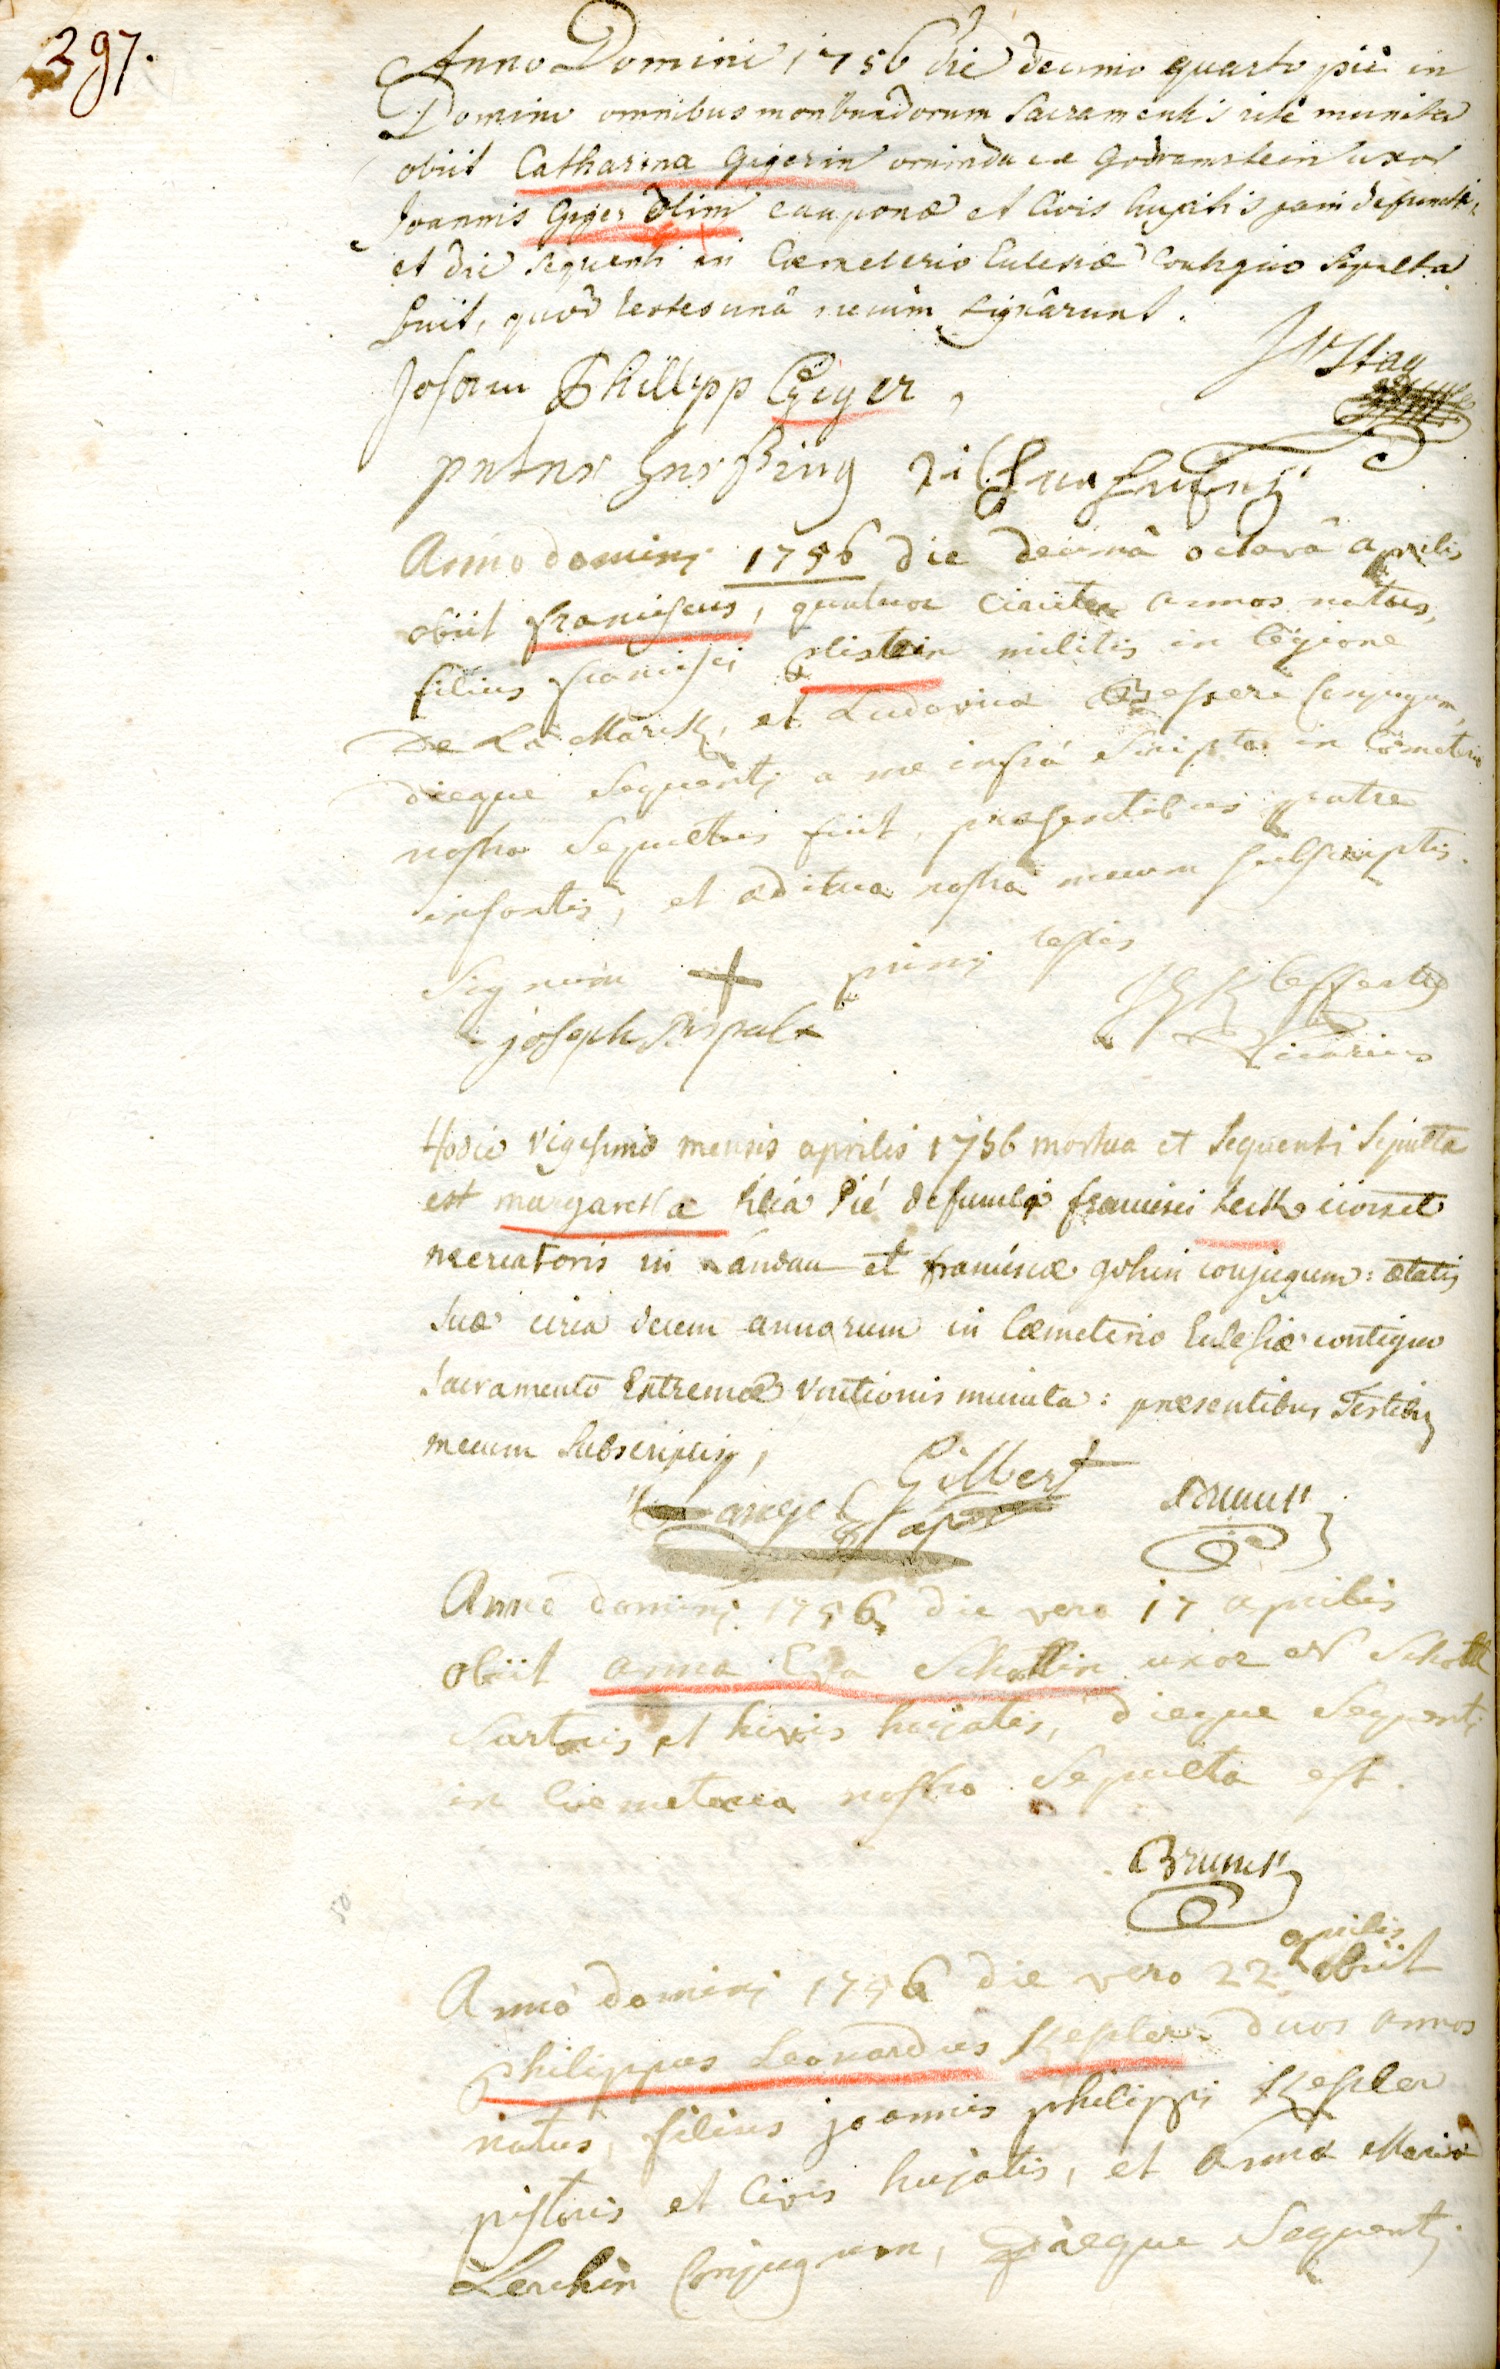 397.
Anno Domini 1756 die decimo quarto pié in
Domino omnibus moribundorum Sacramentis rité munita
obiit Catharina Gigerin oriunda ex Godramstein uxor
Joannis Geiger olim cauponæ et Civis hujatis jam defuncti,
et die sequenti in Cœmeterio Eclesiæ Contiguo Sepulta
fuit, quod testes unâ mecum signârunt.
Johann Phillipp Geiger,
Anno dominj 1756 die decimâ octavâ aprilis
obiit franciscus, quatuor circiter annos natus,
filius francisci militis in legione
De La Marck, et Ludovica Conjugum,
dieque sequentj a me infrá scripto in Cœmeterio
nostro Sepultus fuit, præsentibus patre
infantis, et ædituo nostro mecum subscriptis.
Signum + primj testis
joseph
Vicarius
Hodie vigesimo mensis aprilis 1756 mortua et sequenti sepulta
est margaretha filia Pié defuncti francisci
mercatoris in Landau et franciscæ conjugum: ætatis
suæ circa decem annorum in Cœmeterio Eclesiæ contiguo
Sacramento Extremæ Unctionis munita: præsentibus Testibus
mecum Subscriptis,
Gilbert
Anno dominj 1756 die vero 17 aprilis
obiit anna Eva Schottin uxor N Schott
Sartoris et Civis hujatis, dieque Sequentj
in Cœmeterio nostro Sepulta est.
aprilis
Anno dominj 1756 die vero 22 obiit
philippus Leonardus Kesler duos annos
natus, filius joannis philippi Kesler
pistoris et Civis hujatis, et Anna Maria
Lerchin Conjugum, dieque Sequentj